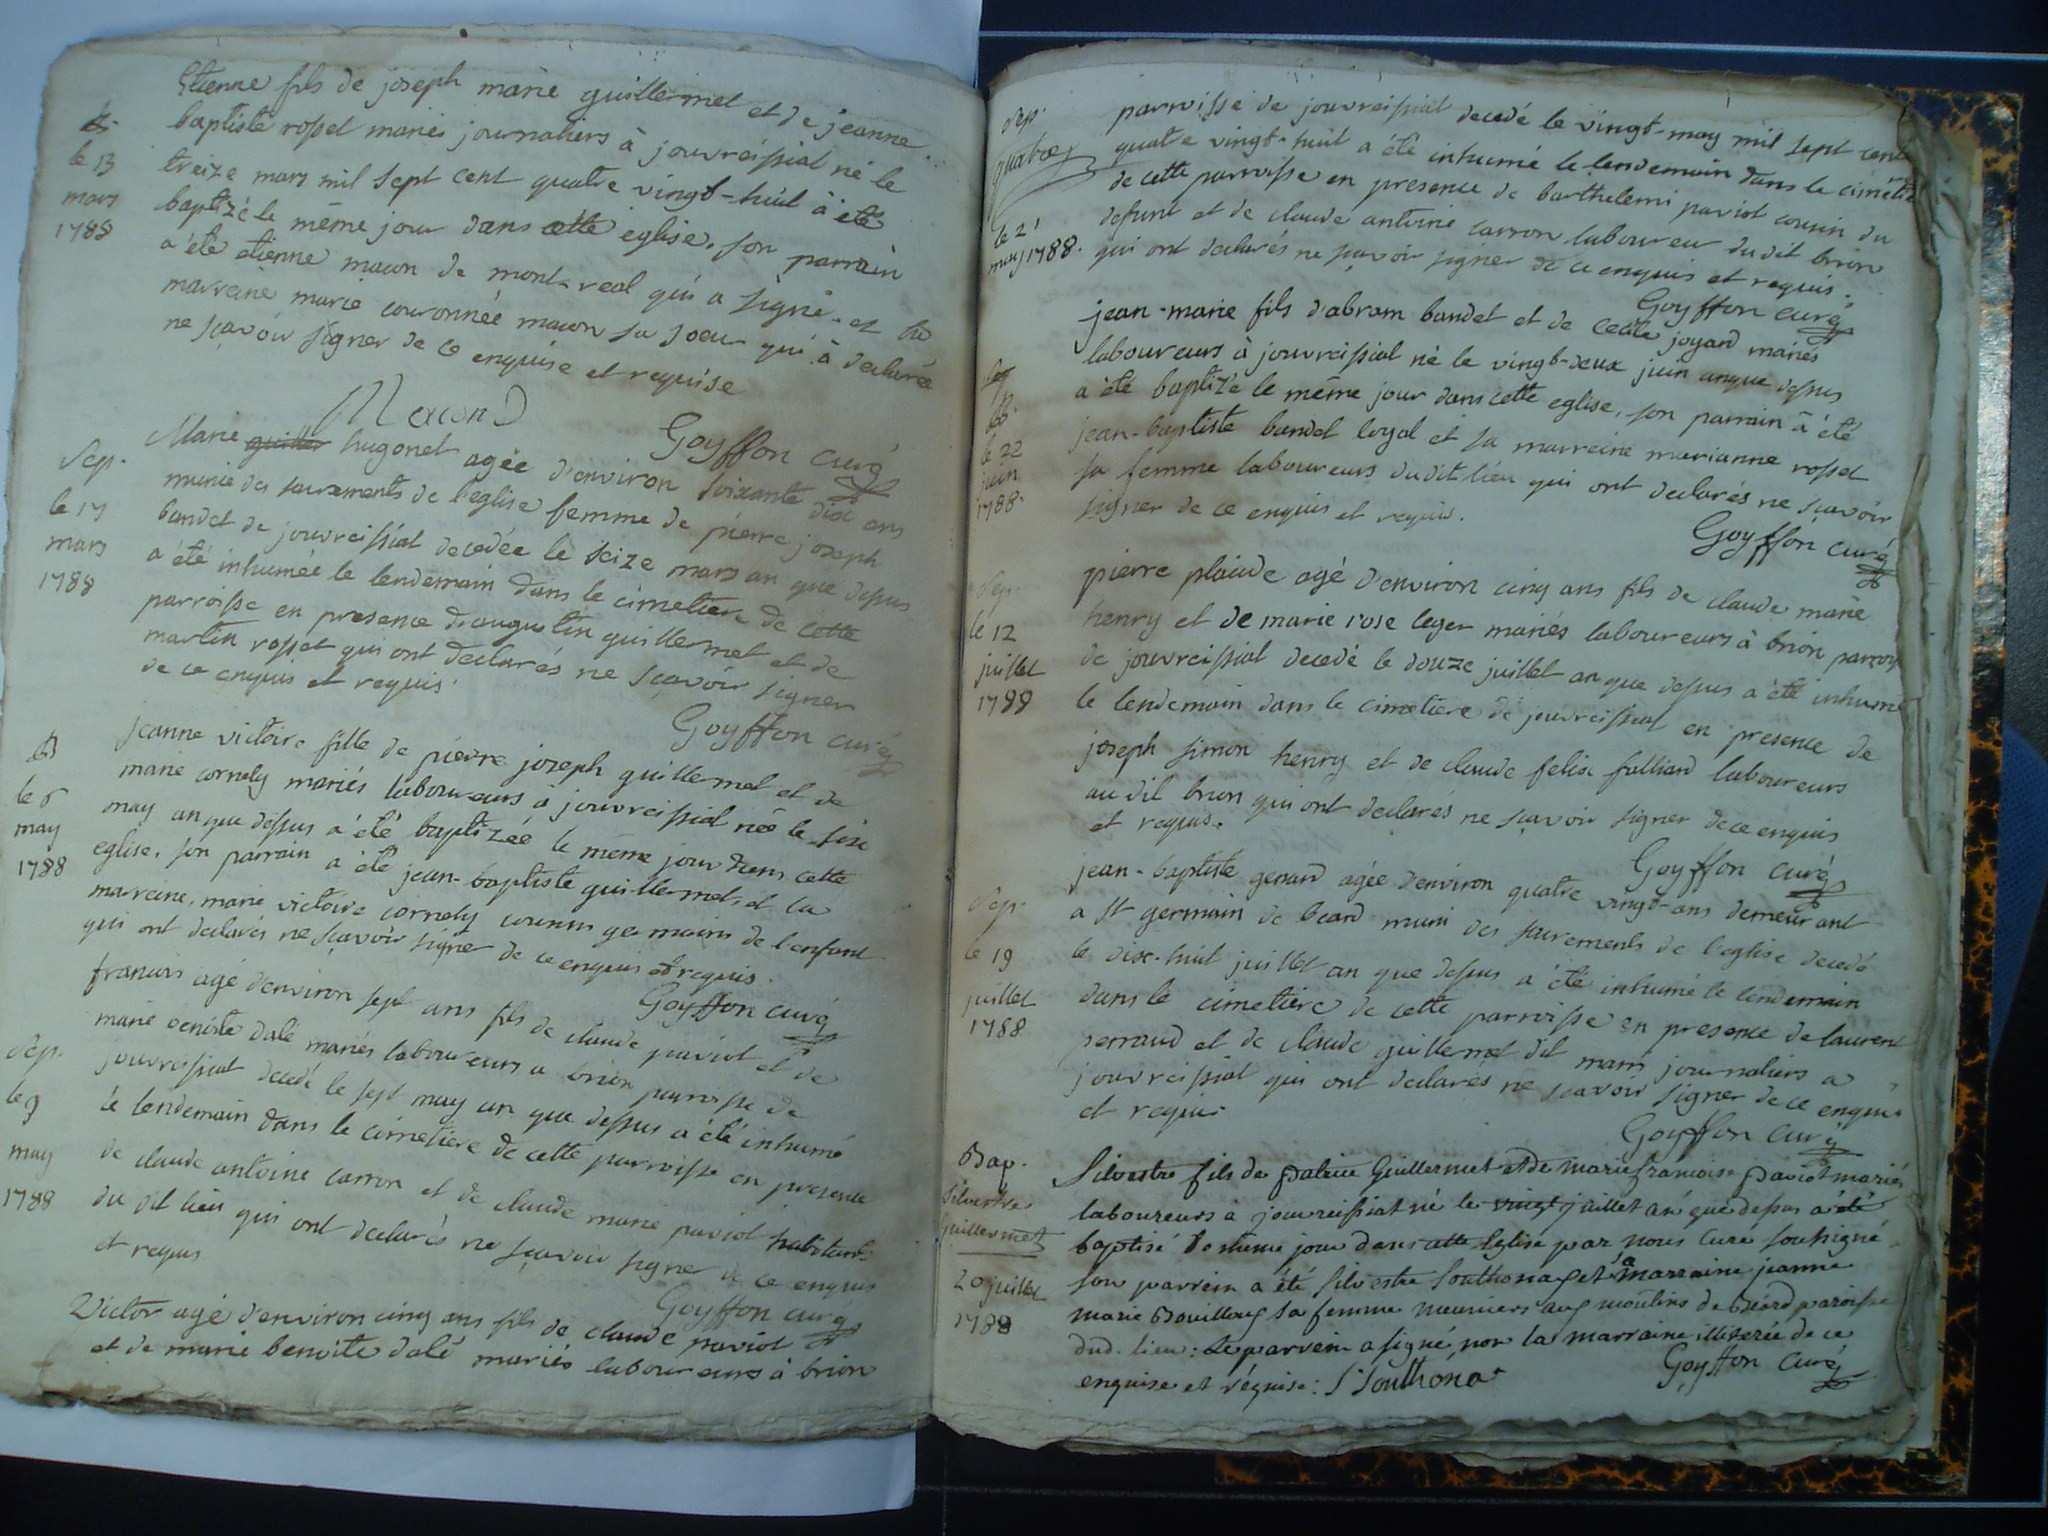 Etienne fils de joseph marie guillermet et de jeanne
B.
baptiste rosset mariés journaliers à jouvreissiat né le
le 13
treize mars mil sept cent quatre vingt-huit à été
mars
baptizé le même jour dans cette eglise. son parrain
1788
a été etienne macon de mont-real qui a signé. et sa
marreine marie couronnée macon sa soeur qui à declarée
ne sçavoir signer de ce enquise et requise
Macon
Goyffon curé
Sep.
Marie hugonet agée d'environ soixante dix ans
munie des sacrements de l'eglise femme de pierre joseph
le 17
bandet de jouvreissiat decedée le seize mars an que dessus
mars
a été inhumée le lendemain dans le cimetiere de cette
1788
parroisse en presence d'augustin guillermet et de
martin rosset qui ont declarés ne sçavoir signer
de ce enquis et requis.
Goyffon curé
B
jeanne victoire fille de pierre joseph guillermet et de
marie cornely mariés laboureurs à jouvreissiat née le six
le 6
may an que dessus a été baptizée le même jour dans cette
may
eglise. son parrain a été jean-baptiste guillermet et la
1788
marreine. marie victoire cornely cousins germains de l'enfant
qui ont declarés ne sçavoir signer de ce enquis et requis.
Goyffon curé
francois agé d'environ sept ans fils de claude paviot et de
marie benoite dalé mariés laboureurs a brion parroisse de
Sep.
jouvreissiat decedé le sept may an que dessus a été inhumé
le
le lendemain dans le cimetiere de cette parroisse en presence
may
de claude antoine carron et de claude marie paviot habitants
1788
du dit lieu qui ont declarés ne sçavoir signer de ce enquis
et requis
Goyffon curé
Victor agé d'environ cinq ans fils de claude paviot
et de marie benoite dalé mariés laboureurs à brion
Sep.
parroisse de jouvreissiat decedé le vingt-may mil sept cent
quatre vingt-huit a été inhumé le lendemain dans le cimetiere
de cette parroisse en presence de barthelemi paviot cousin du
defunt et de claude antoine carron laboureur du dit brion
le 21
may 1788.
qui ont declarés ne sçavoir signer de ce enquis et requis.
Goyffon curé
jean-marie fils d'abram bandet et de cecile joyard mariés
laboureurs à jouvreissiat né le vingt-deux juin an que dessus
a été baptizé le même jour dans cette eglise. son parrain à été
le 22
jean-baptiste bandet loyal et sa marreine marianne rosset
juin
sa femme laboureurs du dit lieu qui ont declarés ne sçavoir
1788.
signer de ce enquis et requis.
Goyffon curé
Sep.
pierre placide agé d'environ cinq ans fils de claude marie
le 12
henry et de marie rose leger mariés laboureurs à brion parroisse
juillet
de jouvreissiat decedé le douze juillet an que dessus a été inhumé
1788
le lendemain dans le cimetiere de jouvreissiat en presence de
joseph simon henry et de claude felix falliard laboureurs
au dit brion qui ont declarés ne sçavoir signer de ce enquis
et requis.
Goyffon curé
Sep.
jean-baptiste genard agée d'environ quatre vingt-ans demeurant
a st germain de beard muni des sacrements de l'eglise decedé
le 19
le dix-huit juillet an que dessus a été inhumé le lendemain
juillet
dans le cimetiere de cette parroisse en presence de laurent
1788
perraud et de claude guillermet dit marin journaliers a
jouvreissiat qui ont declarés ne scavoir signer de ce enquis
et requis
Goyffon curé
Bap.
Silvestre fils de patrice Guillermet et de marie francoise paviot mariés
Silvestre
laboureurs a jouvreissiat né le vingt juillet an que dessus a été
Guillermet
baptisé le même jour dans cette Eglise par nous Curé soussigné
20 juillet
son parrein a été silvestre Southonax et la marraine jeanne
1788
marie Bouilloux sa femme meuniers aux moulins de Béard paroisse
dud. lieu: Le parrein a signé, non la marraine illiterée de ce
enquise et réquise: S Southonax
Goyffon curé